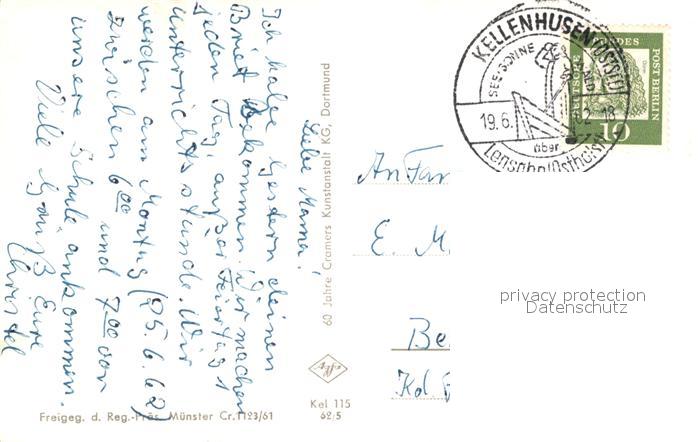 Liebe Mama!
Ich habe gestern deinen
Brief bekommen. Wir machen
jeden Tag, außer Feiertag 1
Unterrichtsstunde. Wir
werden am Montag (25.6.62)
zwischen 6.00 und 7.00 von
unsere Schule ankommen.
Viele Grüße Eure
Christel
60 Jahre Cramers Kunstanstalt KG, Dortmund
Freigeg. d. Reg.-Präs. Münster Cr. 1123/61
Kel 115
62/5
An Fam
E. M
Be
KELLENHUSEN/OSTSEE
SEE-SONNE
19.6.
18
über
Lensahn/Ostholst
POST BERLIN
10
privacy protection
Datenschutz